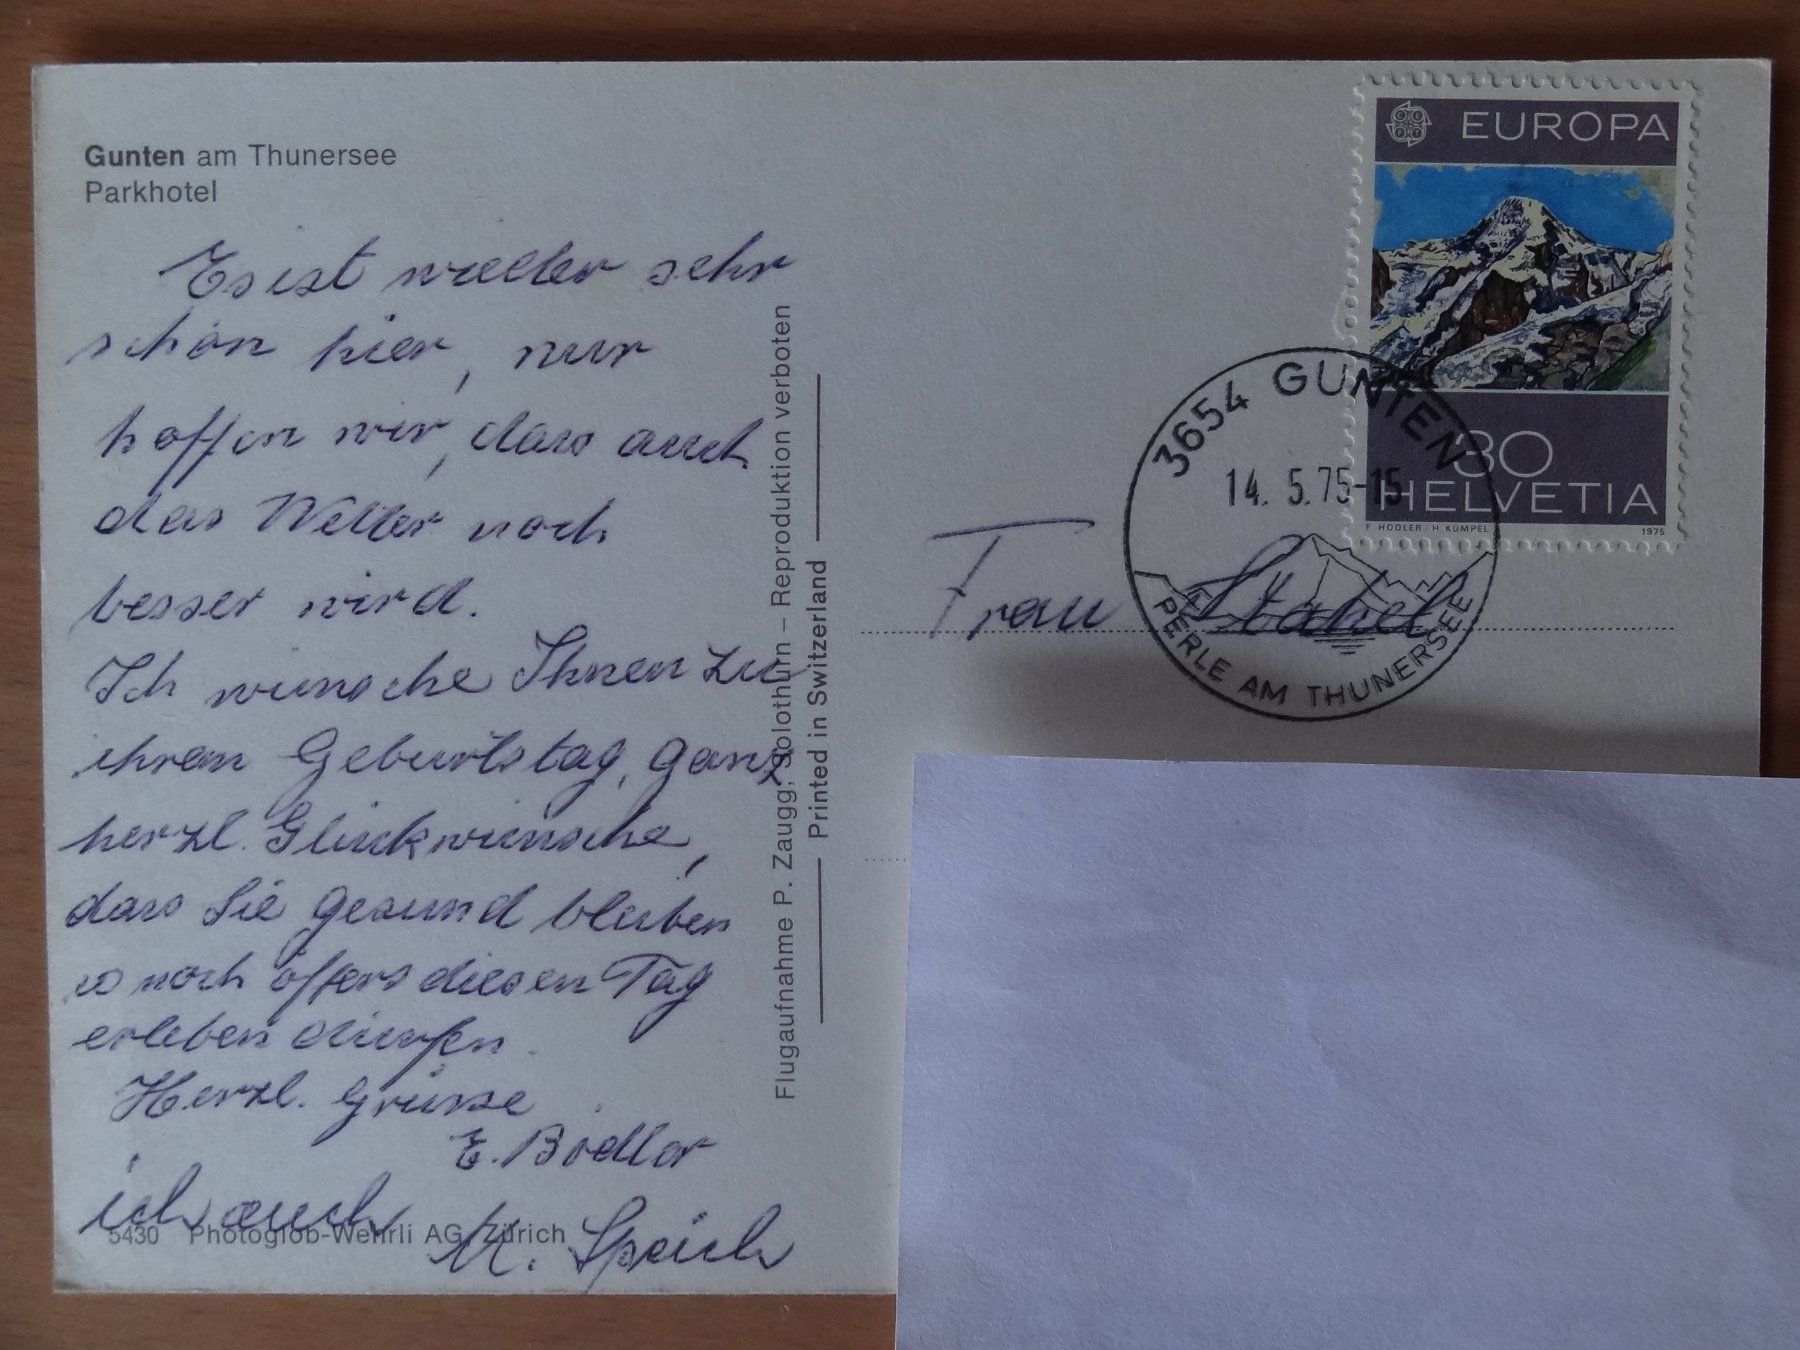 Gunten am Thunersee
Parkhotel
Es ist weiter sehr
schön hier, nur
hoffen wir, dass auch
das Wetter noch
besser wird.
Ich wünsche Ihnen zu
ihrem Geburtstag, ganz
herzl. Glückwünsche,
dass Sie gesund bleiben
so noch öfters diesen Tag
erleben dürfen.
Herzl. Grüsse
E.
ich auch
M. Speich
5430 Photoglob-Wehrli AG, Zürich
Flugaufnahme P. Zaugg, Solothurn – Reproduktion verboten
Printed in Switzerland
EUROPA
30
HELVETIA
F. HODLER / H. KÜMPEL 1975
3654 GUNTEN
14. 5. 75-15
PERLE AM THUNERSEE
Frau Stahel